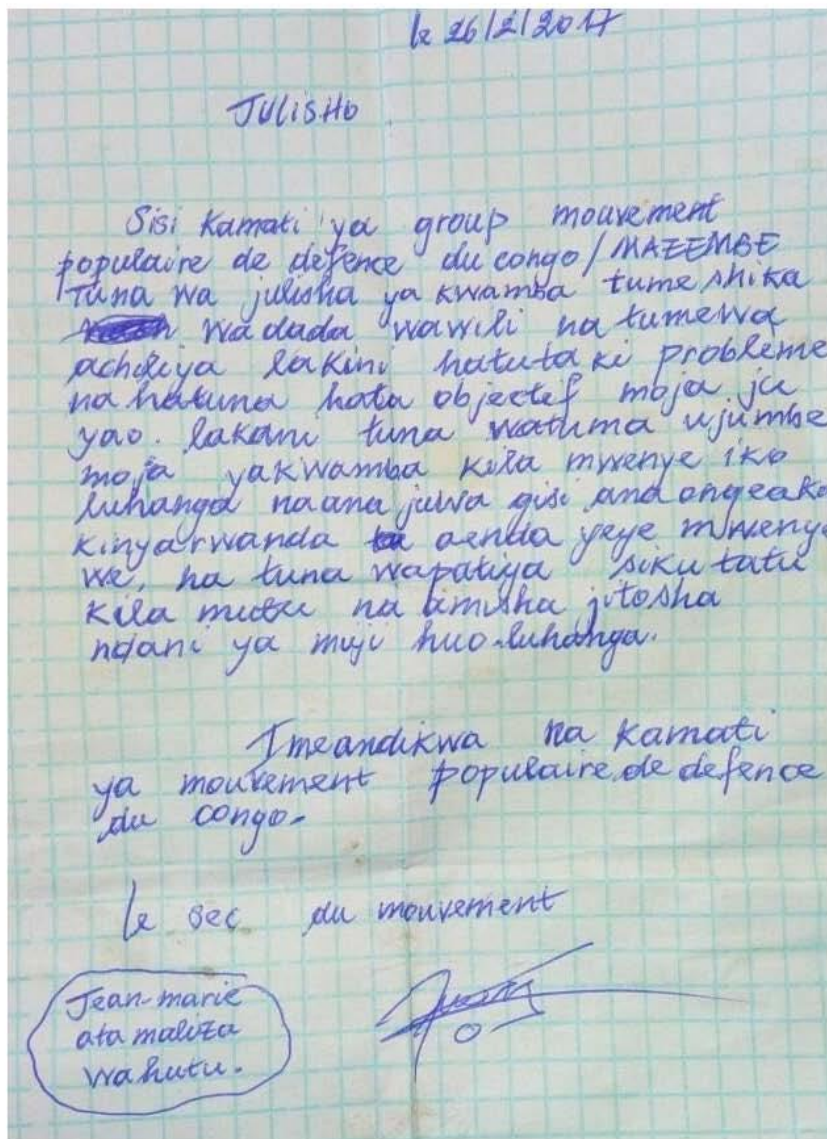 le 26/2/2017
JULISHO
Sisi Kamati ya group mouvement
populaire de defence du congo/MAZEMBE
Tuna wa julisha ya kwamba tume shika
wadada wawili na tumewa
achiliya lakini hatutaki probleme
na hatuna hata objectef moja ju
yao. lakani tuna watuma ujumbe
moja yakwamba kila mwenye iko
luhanga naana juwa gisi ana ongeaka
kinyarwanda aenda yeye mwenye
we, na tuna wapatiya siku tatu
kila mutu na amisha jitosha
ndani ya muji huo-luhanga.
Imeandikwa na Kamati
ya mouvement populaire de defence
du congo.
le sec du mouvement
Jean-marie
ata maliza
wahutu.